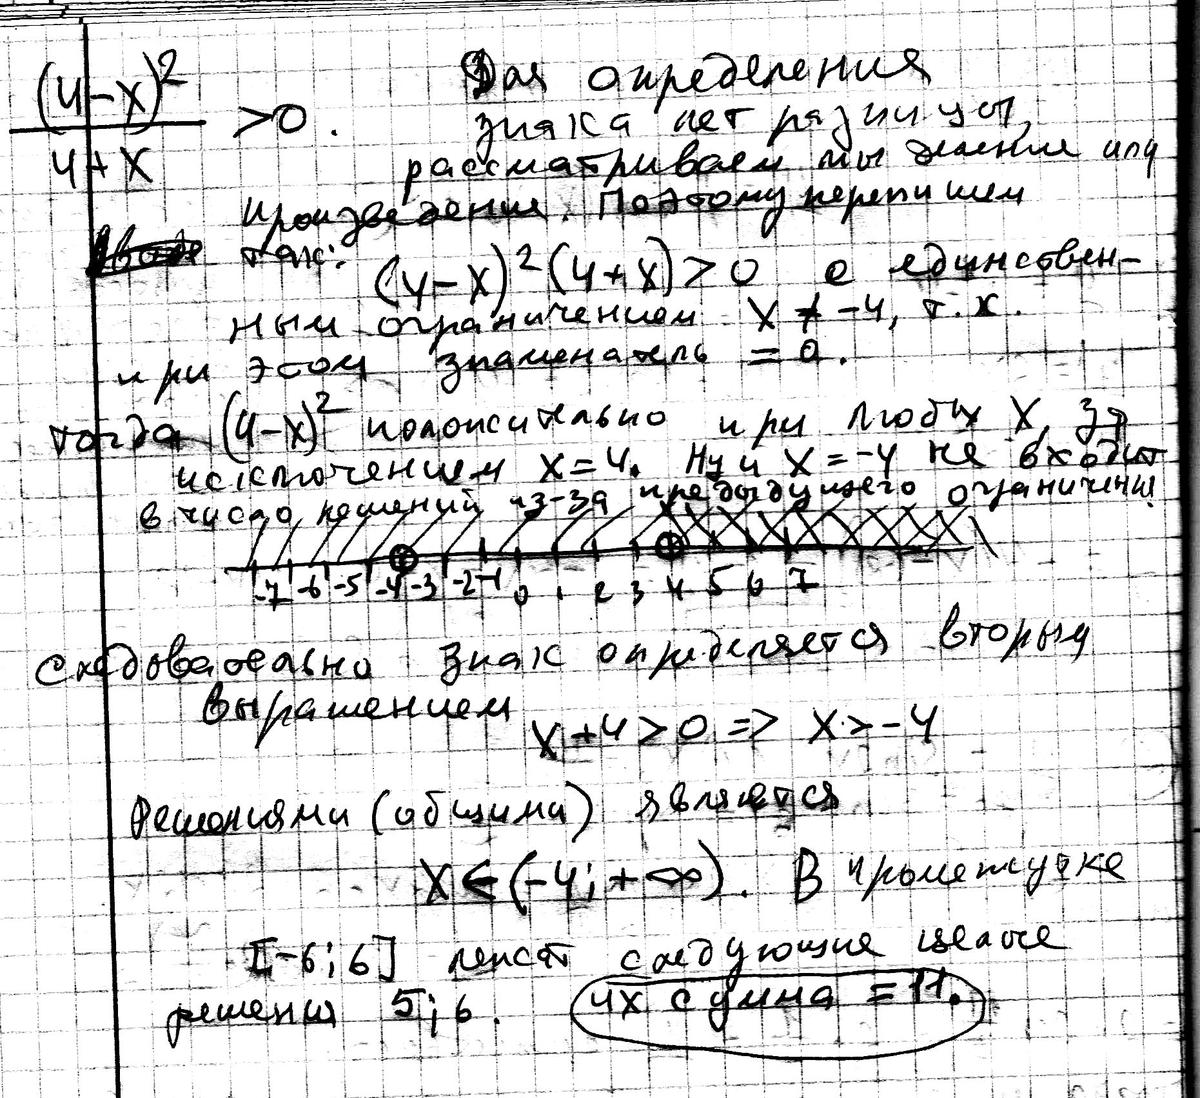 (4-x)² / 4+x > 0. Для определения
знака нет разницы,
рассматриваем мы деление или
произведение. Поэтому перепишем
так:
(4-x)²(4+x)>0 с единствен-
ным ограничением x ≠ -4, т.к.
при этом знаменатель = 0.
тогда (4-x)² положительно при любых x, за
исключением x=4. Ну и x=-4 не входит
в число решений из-за предыдущего ограничения
-7 -6 -5 -4 -3 -2 -1 0 1 2 3 4 5 6 7
Следовательно знак определяется вторым
выражением
x+4>0 => x>-4
Решениями (общими) является
x∈(-4;+∞). В промежутке
[-6;6] лежат следующие целые
решения 5;6. их сумма = 11.